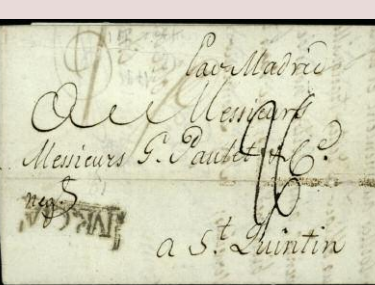 Par Madrid
A Messieurs
Messieurs G. Paulet & Cº.
neg.ts
26
a St. Quintin